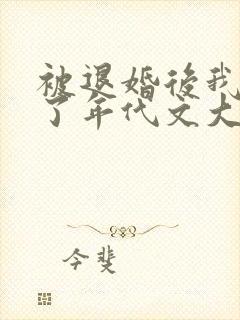 被退婚後我
了年代文大
今斐